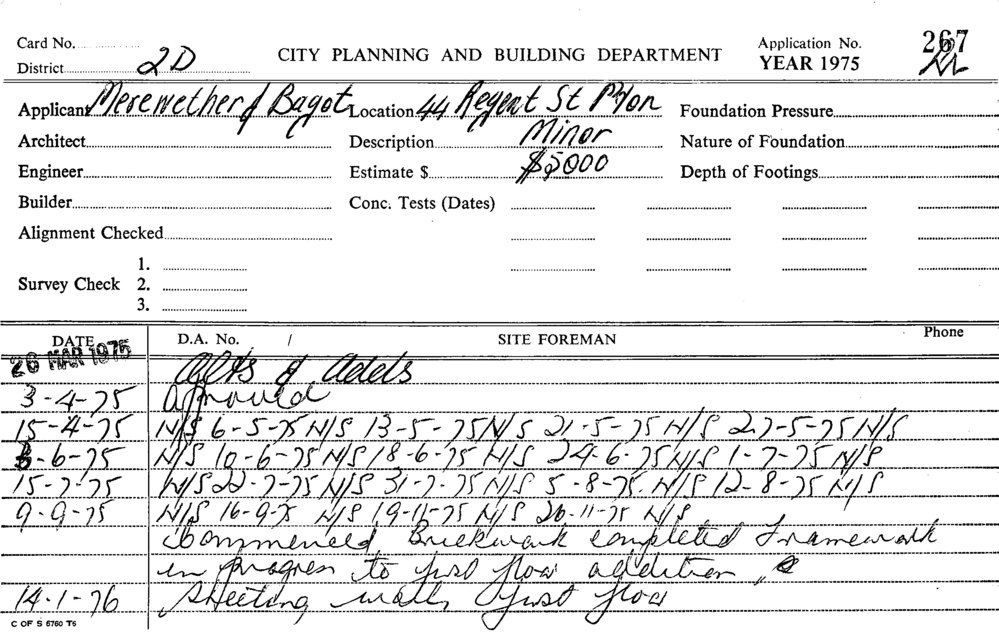 Card No. 267
District 2D CITY PLANNING AND BUILDING DEPARTMENT Application No.
YEAR 1975
Applicant Merewether & Bagot Location 44 Regent St Foundation Pressure
Architect Description Minor Nature of Foundation
Engineer Estimate $ $5000 Depth of Footings
Builder Conc. Tests (Dates)
Alignment Checked
1.
Survey Check 2.
3.
DATE D.A. No. / SITE FOREMAN Phone
26 MAR 1975 Alts & Adds
3-4-75 Approved
15-4-75 N/S 6-5-75 N/S 13-5-75 N/S 21-5-75 N/S 27-5-75 N/S
3-6-75 N/S 10-6-75 N/S 18-6-75 N/S 24-6-75 N/S 1-7-75 N/S
15-7-75 N/S 22-7-75 N/S 31-7-75 N/S 5-8-75 N/S 12-8-75 N/S
9-9-75 N/S 16-9-75 N/S 19-11-75 N/S 26-11-75 N/S
Commenced Brickwork completed Framework
in progress to first floor addition
14-1-76 Sheeting walls first floor
C OF S 6760 T5